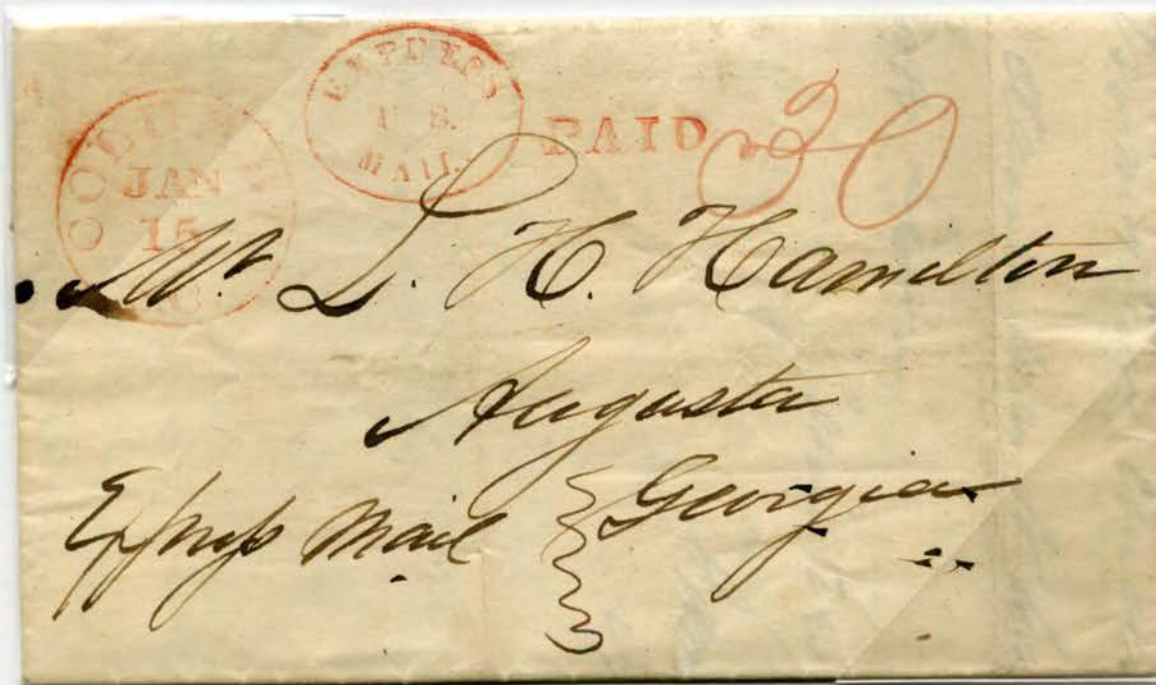 JAN
15
EXPRESS
U.S.
MAIL.
PAID
Mr. L. H. Hamilton
Augusta
Georgia
Express Mail